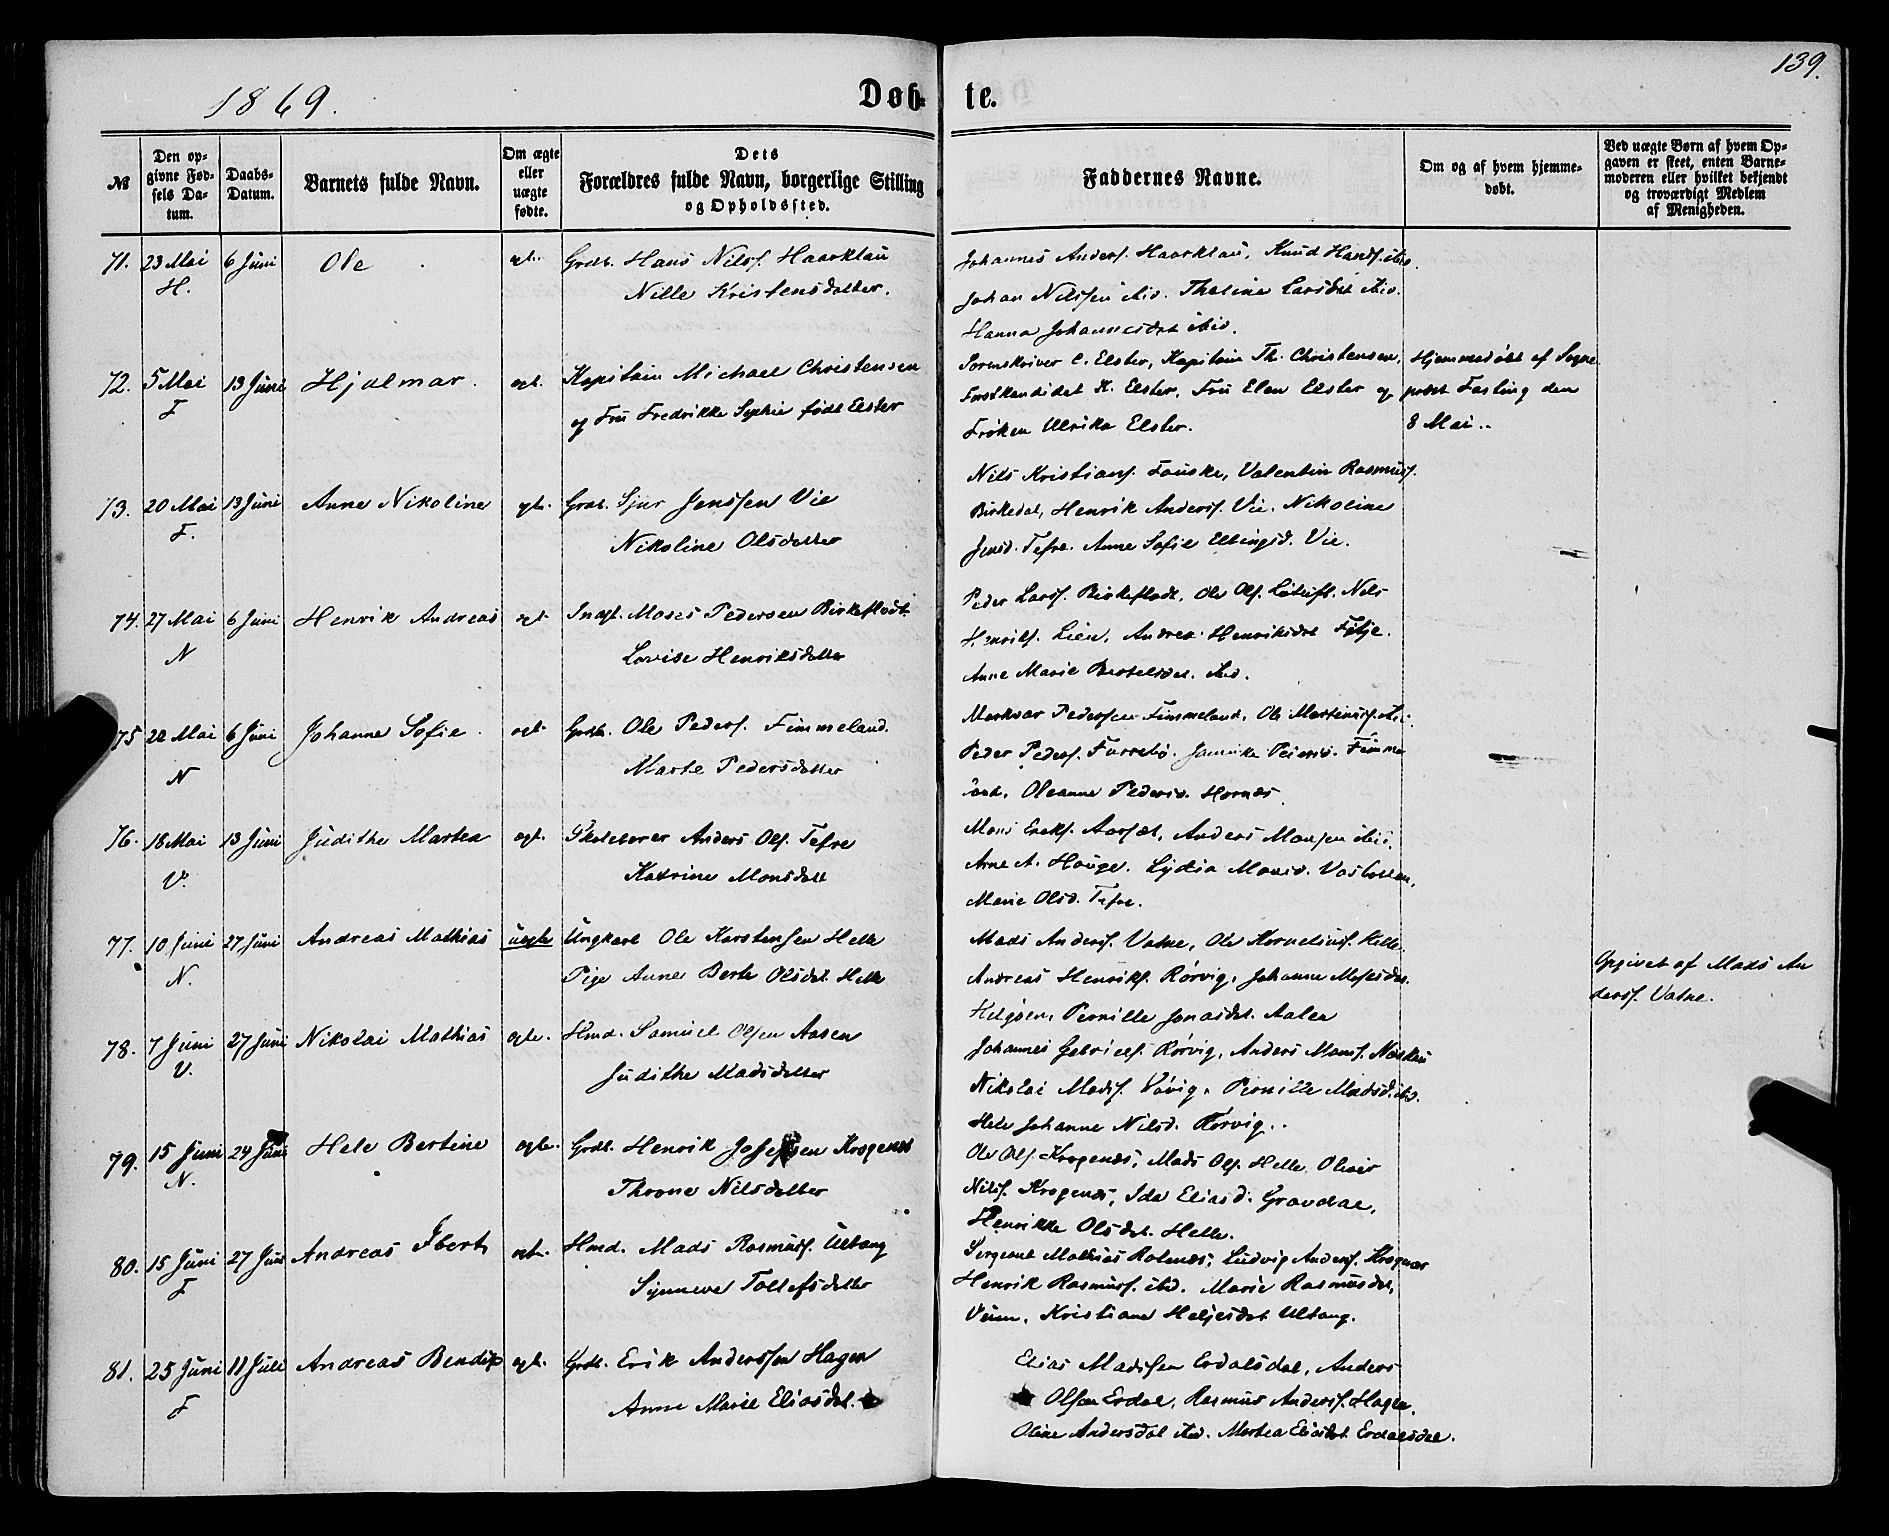 139.
1869.
Døb- te.
№
Den opgivne Fødsels Datum.
Daabs-Datum.
Barnets fulde Navn.
Om ægte eller uægte fødte.
Dets Forældres fulde Navn, borgerlige Stilling og Opholdssted.
Faddernes Navne.
Om og af hvem hjemmedøbt.
Ved uægte Børn af hvem Opgaven er skeet, enten Barnemoderen eller hvilket bekjendt og troværdigt Medlem af Menigheden.
71. 23 Mai 6 Juni Ole egt. Grdb. Hans Nilss. Haarklau
H. Nille Kristensdatter.
Johannes Anderss. Haarklau, Knud Hanss. ibid.
Johan Nilssen ibid. Thaline Larsdat ibid.
Hanna Johannesdat ibid.
72. 5 Mai 13 Juni Hjalmar. egt. Kapitain Michael Christensen
F og Fru Fredrikke Sophie født Elster
Sorenskriver C. Elster, Kapitain Th. Christensen,
Forstkandidat K. Elster, Fru Elen Elster og
Frøken Ulrika Elster.
Hjemmedøbt af Sogne
præst Fasting den
8 Mai.
73. 20 Mai 13 Juni Anne Nikoline egt. Grdb. Sjur Jenssen Vie
F. Nikoline Olsdatter
Nils Kristians. Fauske, Valentin Rasmuss.
Birkedal, Henrik Anderss. Vie. Nikoline
Jensd. Tefre. Anne Sofie Ellingsd. Vie.
74. 27 Mai 6 Juni Henrik Andreas egt. Indst. Moses Pedersen Birkeflodt
N Lovise Henriksdatter
Peder Larss. Birkeflodt, Ole Ols. Nils
Henriks. Lien, Andrea Henriksdat
Anne Marie Bertelsdat. ibid.
75 22 Mai 6 Juni Johanne Sofie. egt. Grdb. Ole Peders. Fimmeland.
N Marte Pedersdatter
Markvar Pederssen Fimmeland, Ole Martinuss. ibid.
Peder Peders. Furrebø. Jannike Peiersd. Fimme
land, Oleanne Pedersd. Hornæs
76. 18 Mai 13 Juni Judithe Martea egt. Skolelærer Anders Ols. Tefre
V. Katrine Monsdatt
Mons Ericks. Aarsæt, Anders Monsen ibid.
Arne A. Hauge. Lydia Monsd. Vasbotten,
Marie Olsd. Tefre.
77. 10 Juni 27 Juni Andreas Mathias uegte Ungkarl Ole Karstensen Helle
N. Pige Anne Berte Olsdat. Helle
Mads Anderss. Vatne, Ole Korneliuss. Helle.
Andreas Henrikss. Rørvig, Johanne Mosesdat.
Helgøen, Pernille Jonasdat. Aalen
Opgivet af Mads An
derss. Vatne.
78. 7 Juni 27 Juni Nikolai Mathias egte. Hmd. Samuel Olsen Aasen
V. Judithe Madsdatter
Johannes Gabriels. Rørvig, Anders Monss. Naustau
Nikolai Madss. Vævig, Pernille Madsd. ibd.
Hele Johanne Nilsd. Rørvig.
79. 15 Juni 24 Juni Hele Bertine egte. Grdb. Henrik Josefsen Krogenæs
N. Throne Nilsdatter
Ole Ols. Krogenæs, Mads Ols. Helle, Oliver
Nilss. Krogenæs, Ida Eliasd. Gravdal,
Henrikke Olsdat. Helle.
80. 15 Juni 27 Juni Andreas Ibert egt. Hmd. Mads Rasmuss. Ultang
F Synneve Tollefsdatter
Sergeant Mathias Rotenæs, Ludvig Anderss. Krognæs
Henrik Rasmuss. ibd. Marie Rasmusdat,
Veum, Kristiane Heljesdat Ultang.
81. 25 Juni 11 Juli Andreas Bendix egt. Grdb. Erik Anderssen Hagen
F Anne Marie Eliasdat.
Elias Madssen Erdalsdal, Anders
Olsen Erdal, Rasmus Anderss. Hagen,
Oline Andersdat ibd. Martea Eliasdat. Erdalsdal.